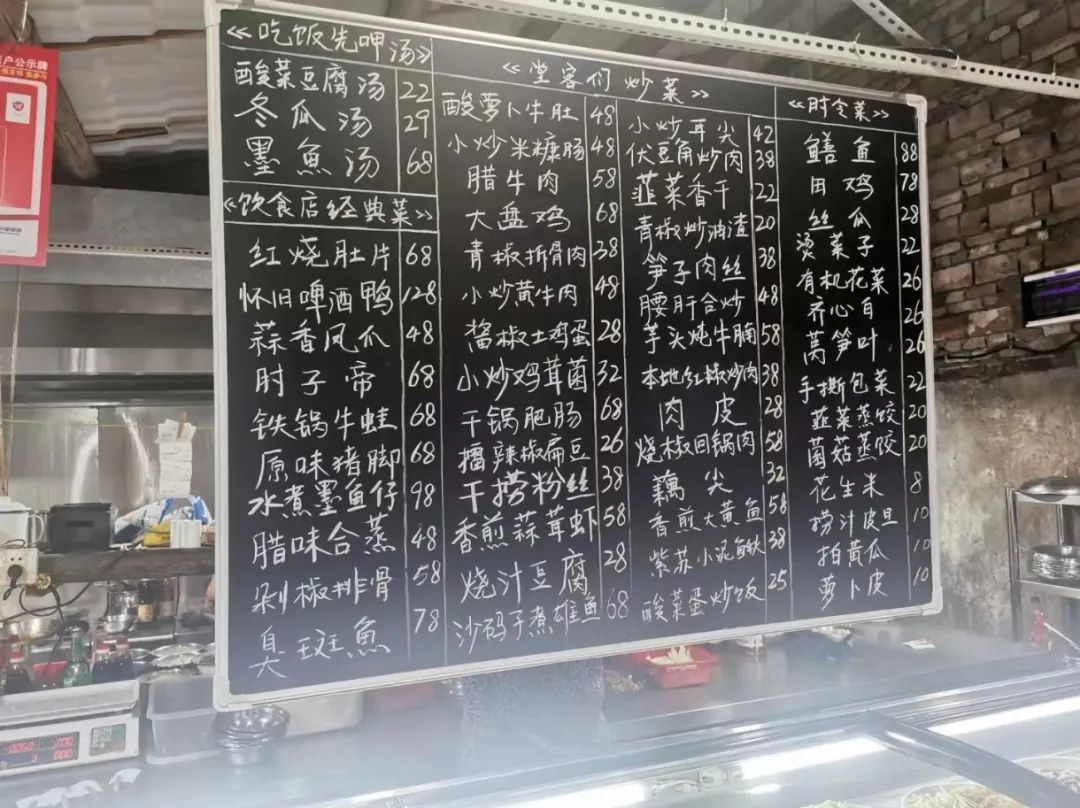 《吃饭先呷汤》
酸菜豆腐汤 22
冬瓜汤 29
墨魚汤 68
《饮食店经典菜》
红烧肚片 68
怀旧啤酒鸭 128
蒜香凤爪 48
肘子帝 68
铁锅牛蛙 68
原味猪脚 68
水煮墨鱼仔 98
腊味合蒸 48
剁椒排骨 58
臭斑魚 78
《堂客们炒菜》
酸萝卜牛肚 48
小炒米糠肠 48
腊牛肉 58
大盘鸡 68
青椒折骨肉 38
小炒黄牛肉 48
酱椒土鸡蛋 28
小炒鸡茸菌 32
干锅肥肠 68
擂辣椒扁豆 26
干捞粉丝 38
香煎蒜茸虾 58
烧汁豆腐 28
沙码子煮雄鱼 68
小炒耳尖 42
伏豆角炒肉 38
韭菜香干 22
青椒炒油渣 20
笋子肉丝 38
腰肝合炒 48
芋头炖牛腩 58
本地红椒炒肉 38
肉皮 28
烧椒回锅肉 58
藕尖 32
香煎大黄鱼 58
紫苏小泥鳅 38
酸菜蛋炒饭 25
《时令菜》
鳝鱼 88
田鸡 78
丝瓜 28
烫菜子 22
有机花菜 26
齐心白 26
莴笋叶 26
手撕包菜 22
韭菜蒸饺 20
菌菇蒸饺 20
花生米 8
捞汁皮旦 10
拍黄瓜 10
萝卜皮 10
户公示牌